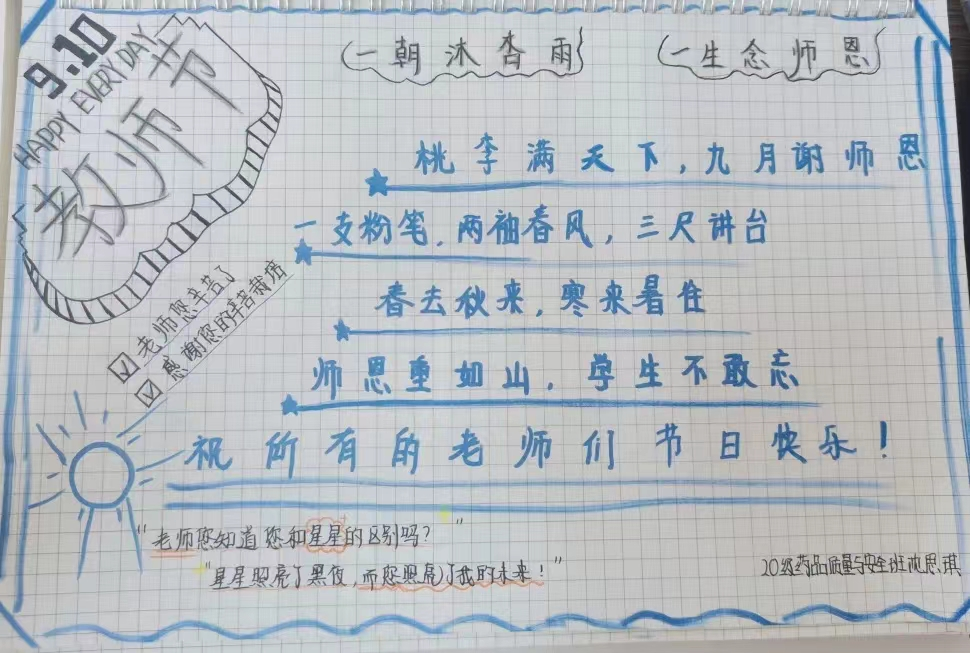 9.10
HAPPY EVERY DAY
教师节
一朝沐杏雨
一生念师恩
桃李满天下,九月谢师恩
一支粉笔,两袖春风,三尺讲台
春去秋来,寒来暑往
师恩重如山,学生不敢忘
老师您辛苦了
感谢您的辛苦栽培
祝所有的老师们节日快乐!
"老师您知道您和星星的区别吗?"
"星星照亮了黑夜,而您照亮了我的未来!"
20级药品质量与安全班 思琪